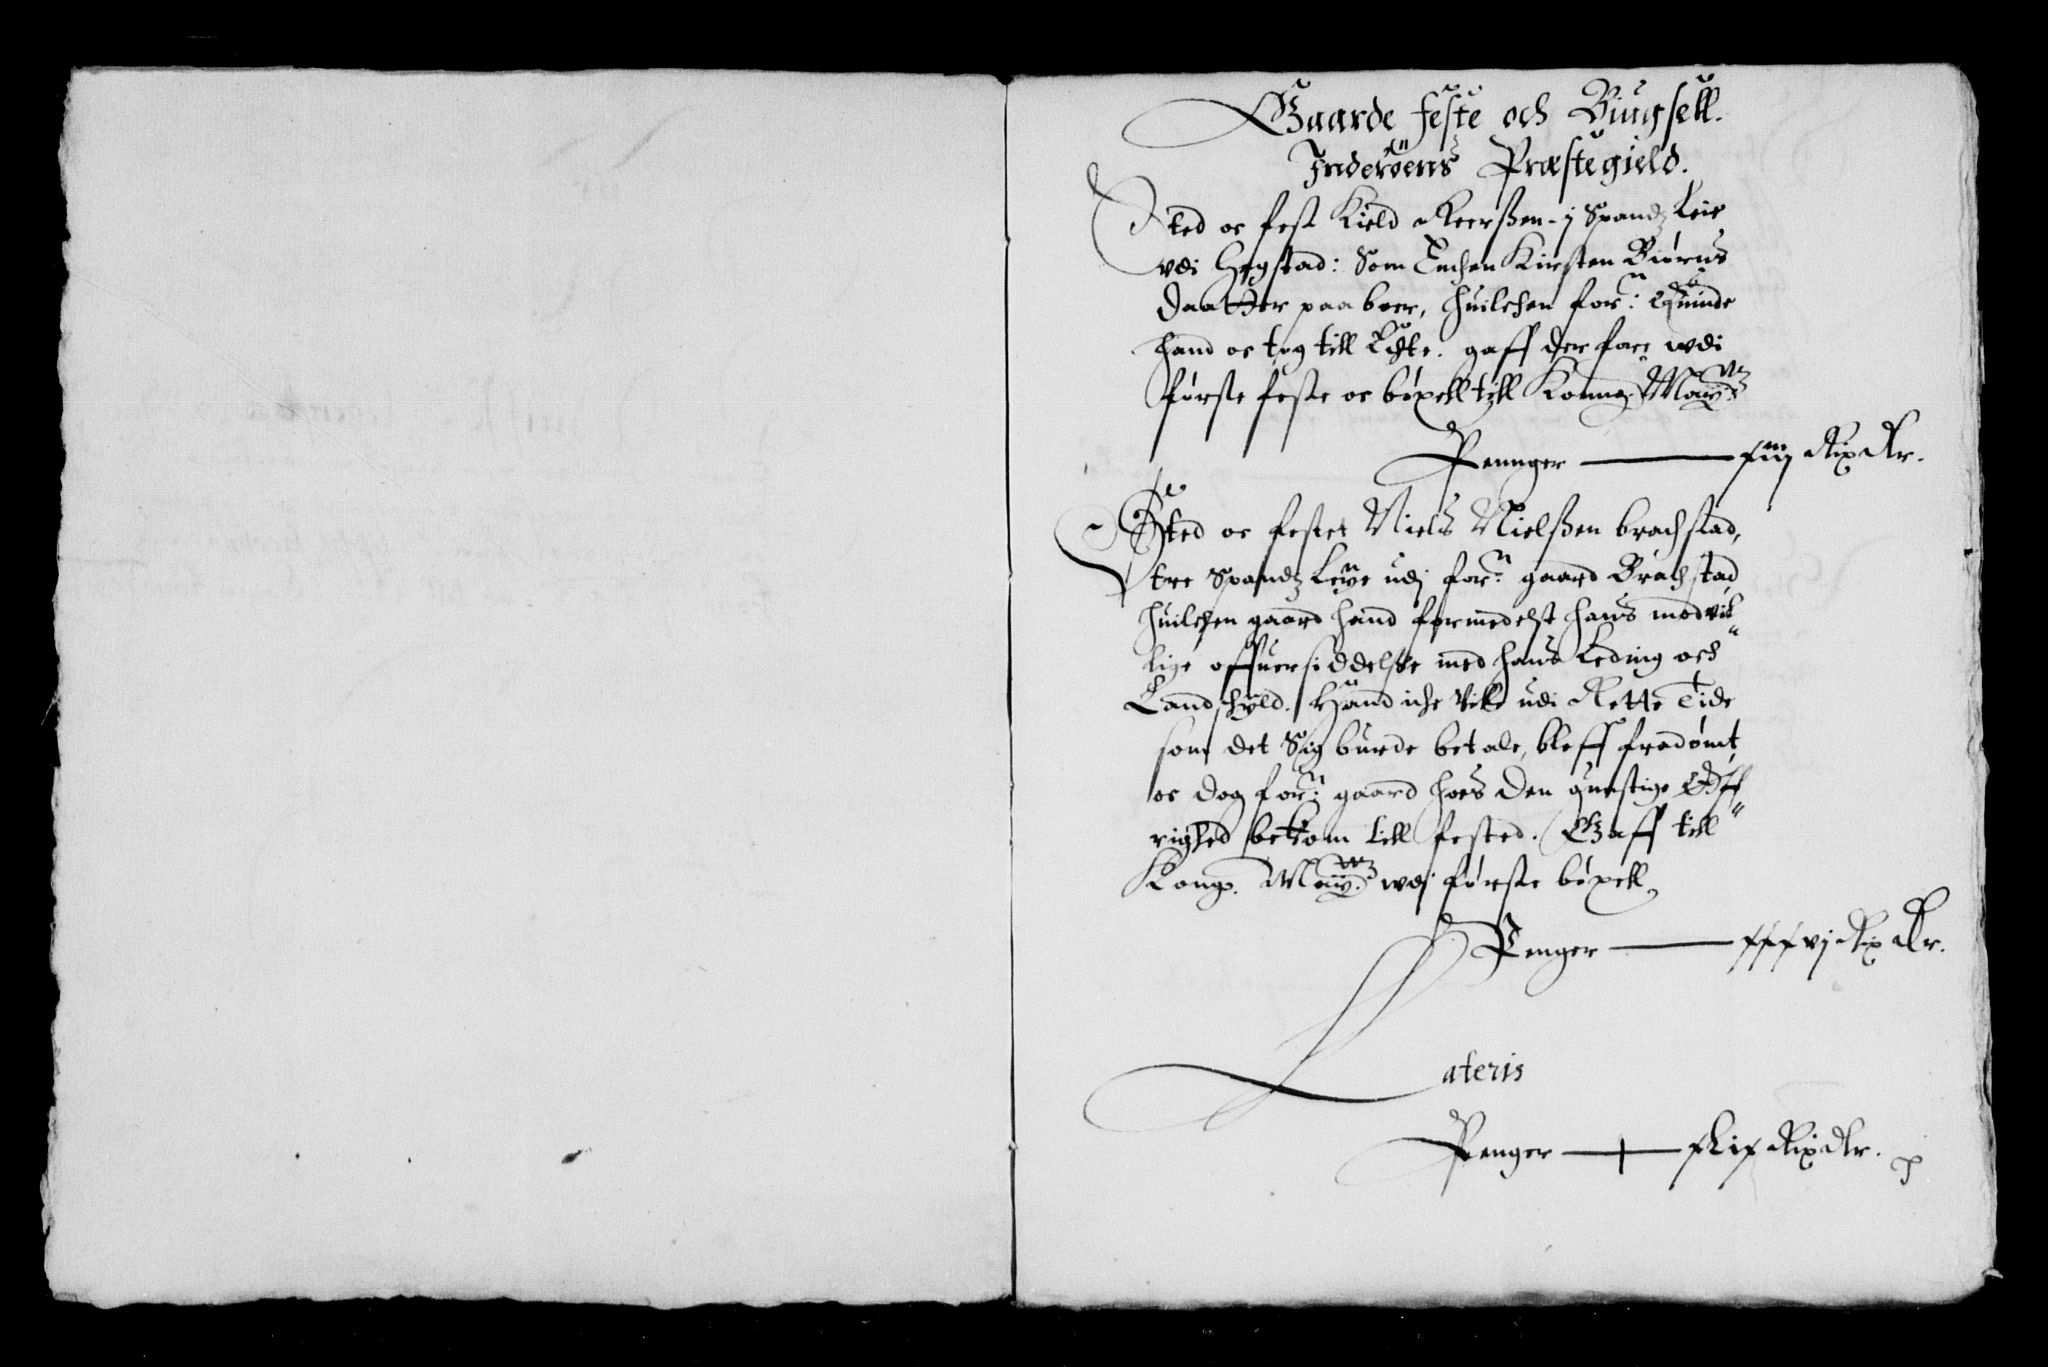 Gaarde feste och Biugsell.
Inderöens Præstegield.
Sted oc fest Kield Reerßen - j Spandz Leie
vdi Hegstad: Som Enchen Kirsten Biørns
daatter paa boer, huilchen for:n Quinde
hand oc tog till Echte. gaff der fore wdi
første feste oc böxell till Konng: Mayts
Pennger ——— xiiij Rix Dlr.
Sted oc festet Niels Nielßen Brachstad,
tre Spandz Leye udj for:n gaard Brachstad
huilchen gaard hand formedelst hans modvil„
lige offuersiddelße med hans Leding och
Landschyld. Hand iche vilde udi Rette Tide
som det Sig burde betale, bleff fradömt,
oc dog for:n gaard hoes den gunstige Øff„
righed bekom till fested. Gaff till
Kong: Mayts: wdj første böxell
Penger ——— xxxvj Rix Dlr.
Lateris
Penger ——— xLix Rix Dlr.